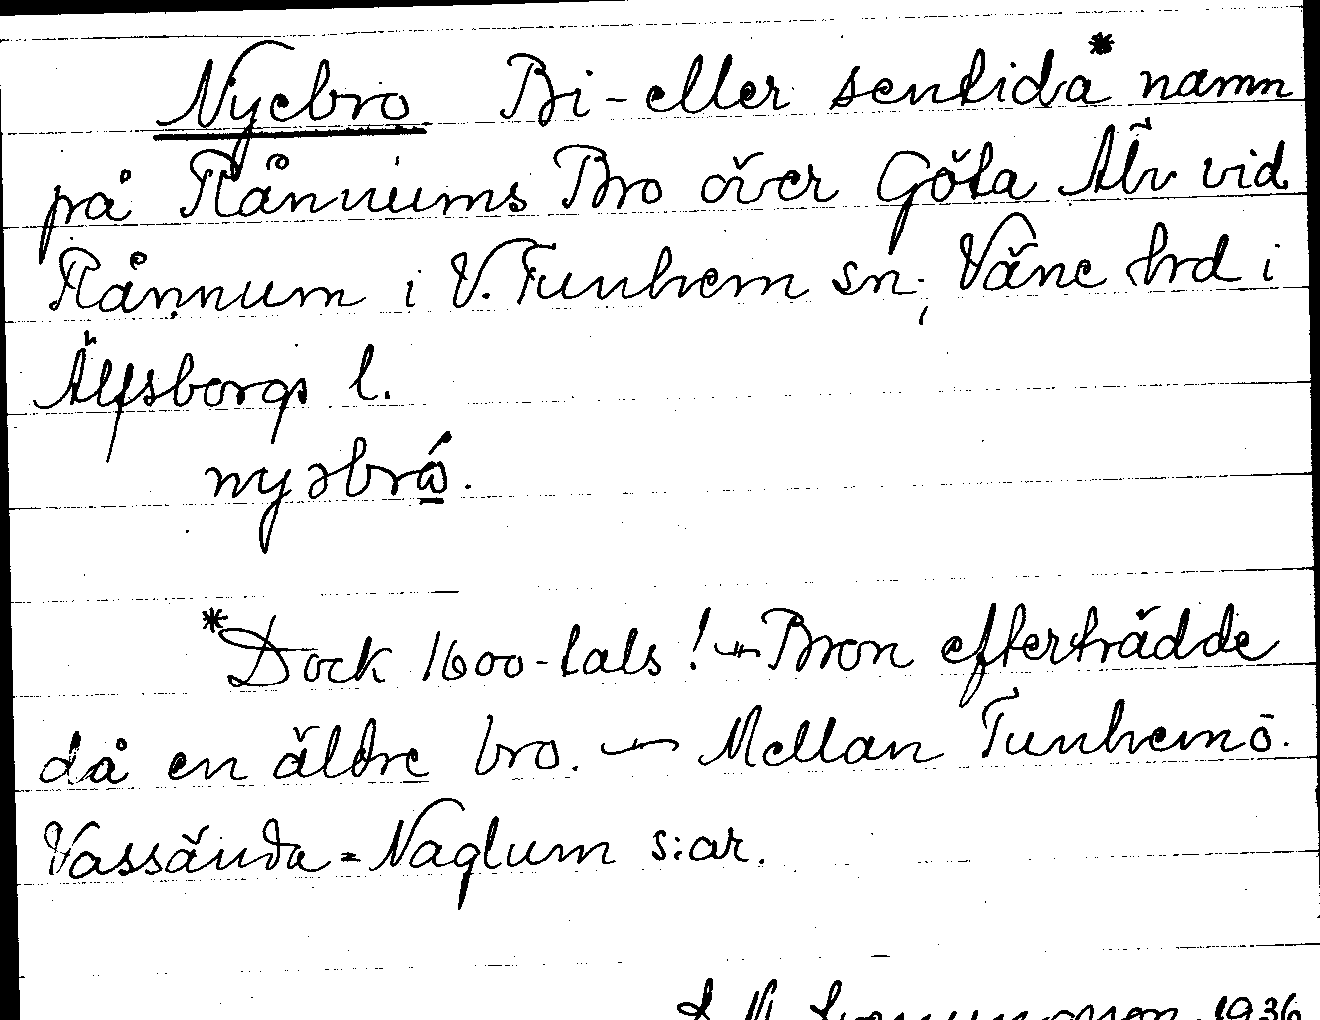 Nyebro. Bi-eller sentida* namn
på Rånnums Bro över Göta Älv vid
Rånnum i V. Tunhem sn; Väne hrd i
Älfsborgs l.
nyəbrώ.
*Dock 1600-tals! — Bron efterträdde
då en äldre bro. — Mellan Tunhem o.
Vassända-Naglum s:ar.
1936